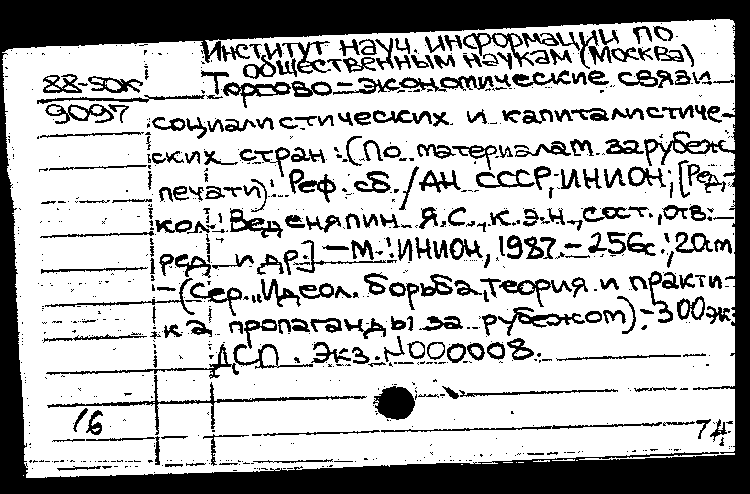 Институт науч. информации по
общественным наукам (Москва)
88-50к
Торгово-экономические связи
9097
социалистических и капиталистиче-
ских стран: (По материалам зарубеж.
печати): Реф. сб. / АН СССР, ИНИОН; [Ред.-
кол.: Веденяпин Я.С., к.э.н., сост., отв.
ред. и др.]. - М.: ИНИОН, 1987. - 256с.; 20см
- (Сер. "Идеол. борьба, теория и практи-
ка пропаганды за рубежом). - 300экз
ДСП. Экз. N000008.
16
74